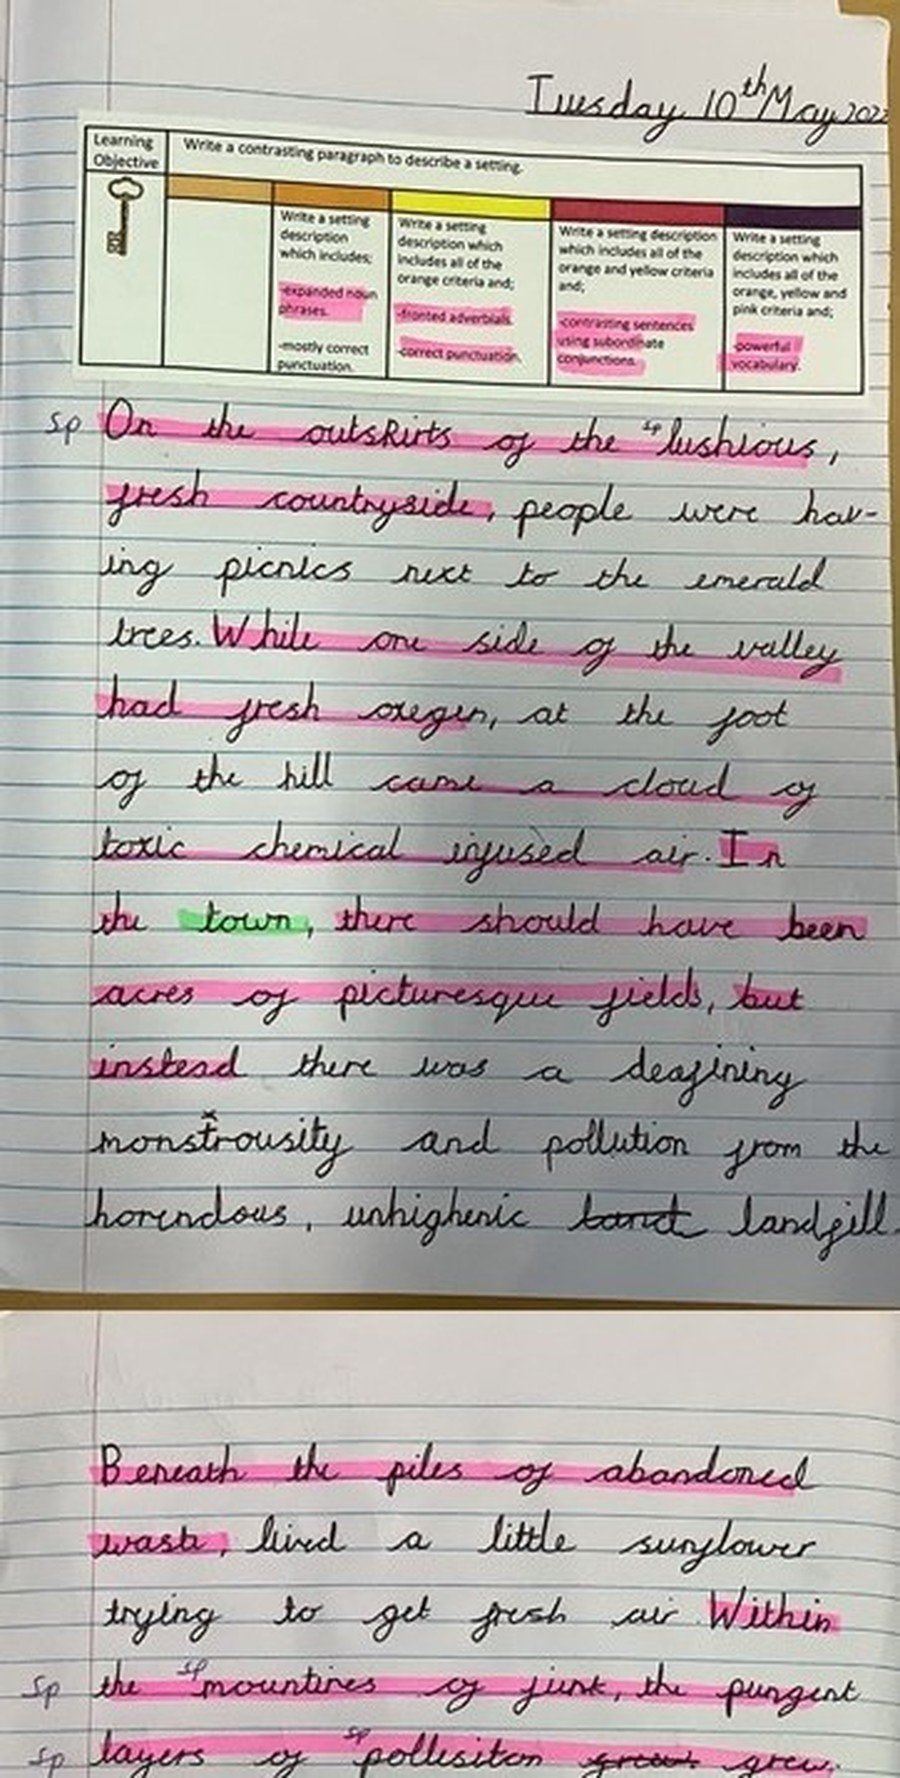 Tuesday 10th May 2022
Learning Objective
Write a contrasting paragraph to describe a setting.
Write a setting description which includes;
-expanded noun phrases.
-mostly correct punctuation.
Write a setting description which includes all of the orange criteria and;
-fronted adverbials.
-correct punctuation.
Write a setting description which includes all of the orange and yellow criteria and;
-contrasting sentences using subordinate conjunctions.
Write a setting description which includes all of the orange, yellow and pink criteria and;
-powerful vocabulary.
sp On the outskirts of the sp lushious,
fresh countryside, people were hav-
ing picnics next to the emerald
trees. While one side of the valley
had fresh oxegen, at the foot
of the hill came a cloud of
toxic chemical infused air. In
the town, there should have been
acres of picturesque fields, but
instead there was a deafining
monstrousity and pollution from the
horendous, unhighenic landfill.
Beneath the piles of abandoned
waste, lived a little sunflower
trying to get fresh air. Within
sp the sp mountines of junk, the pungent
sp layers of sp pollesiton grew grew.